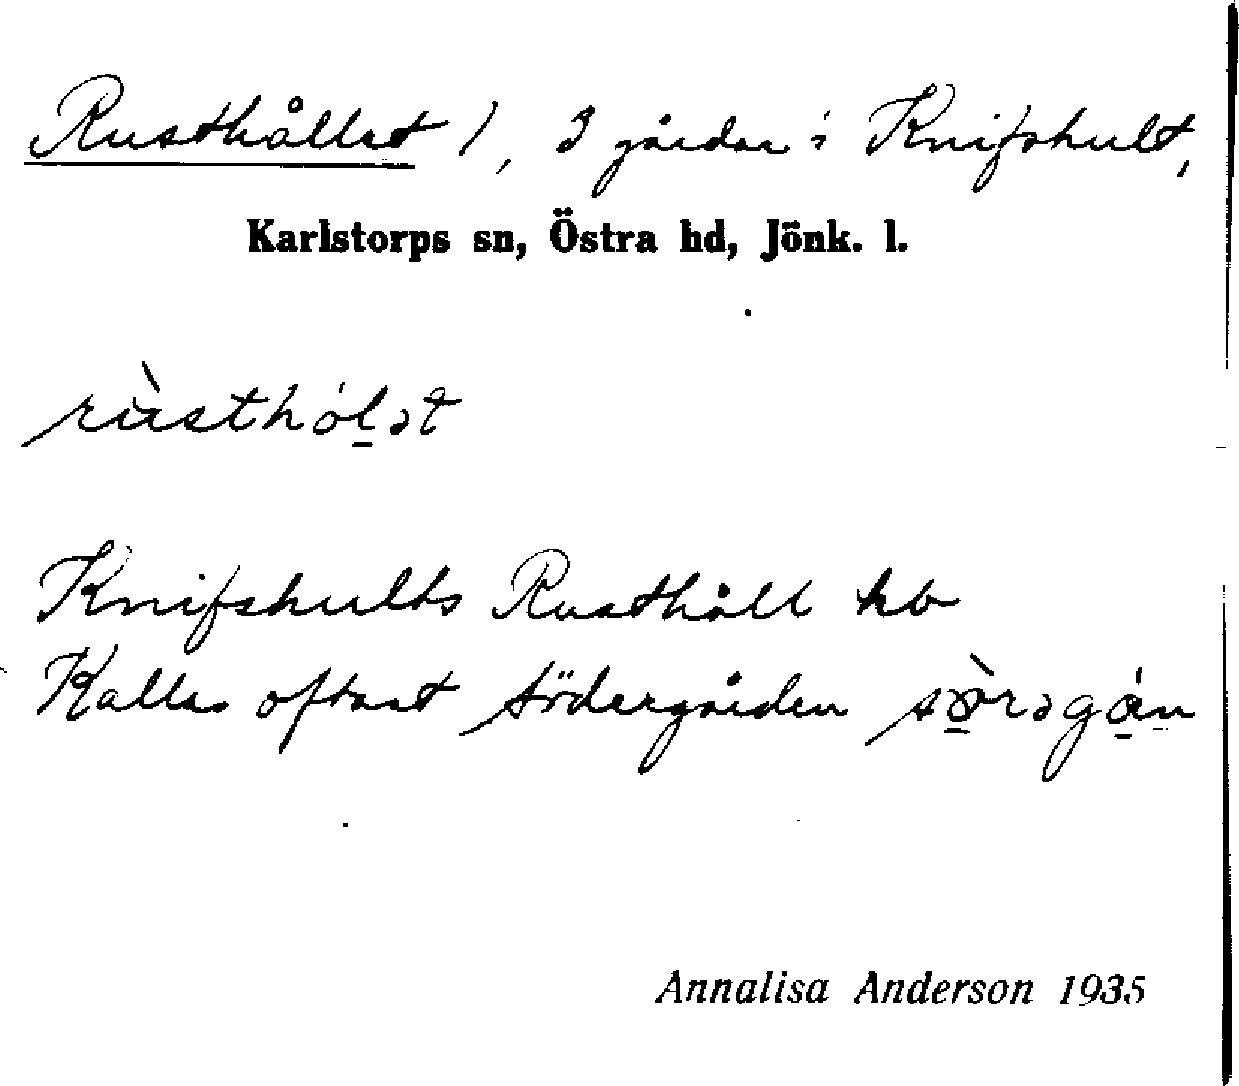 Rusthållet /, 3 gårdar i Knifshult,
Karlstorps sn, Östra hd, Jönk. l.
rùsthól̲ət
Knifshults Rusthåll kb
Kallas oftast Södergården
Annalisa Anderson 1935